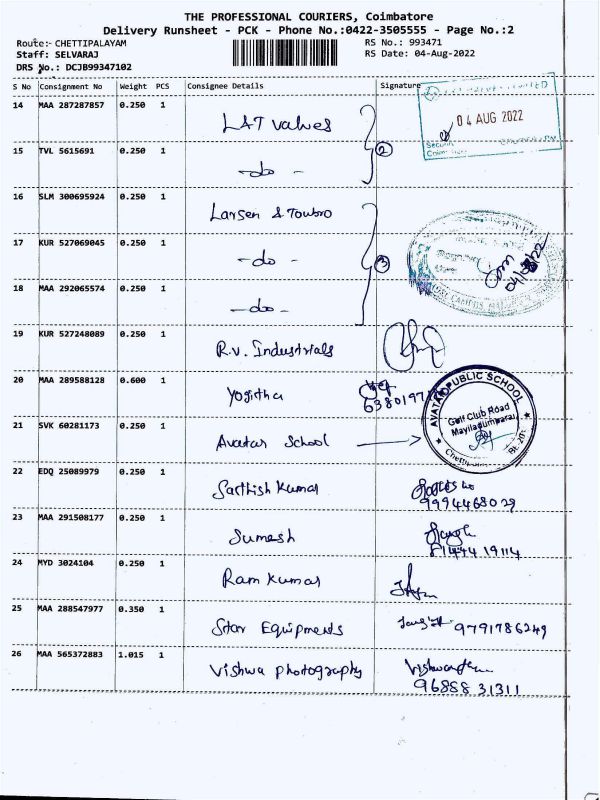 THE PROFESSIONAL COURIERS, Coimbatore
Delivery Runsheet - PCK - Phone No.:0422-3505555 - Page No.:2
Route:- CHETTIPALAYAM RS No.: 993471
Staff: SELVARAJ RS Date: 04-Aug-2022
DRS No.: DCJB99347102
S No Consignment No Weight PCS Consignee Details Signature
04 AUG 2022
14 MAA 287287857 0.250 1 L&T Valves
15 TVL 5615691 0.250 1 -do- 2
16 SLM 300695924 0.250 1 Larsen & Toubro
17 KUR 527069045 0.250 1 -do- 3
04/08/22
18 MAA 292065574 0.250 1 -do-
19 KUR 527248089 0.250 1 R.V. Industrials
20 MAA 289588128 0.600 1 Yogitha
AVATAR PUBLIC SCHOOL
Golf Club Road
21 SVK 60281173 0.250 1 Avatar School
22 EDQ 25089979 0.250 1 Sathish Kumar
9994468029
23 MAA 291508177 0.250 1 Sumesh
24 MYD 3024104 0.250 1 Ram Kumar
25 MAA 288547977 0.350 1 Star Equipments 9791786249
26 MAA 565372883 1.015 1 Vishwa photography
96888 31311